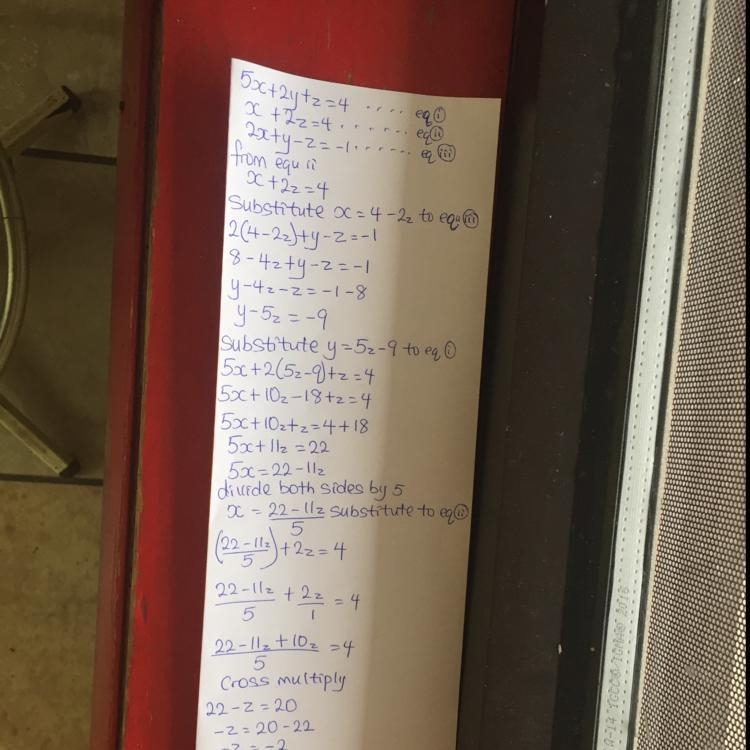 5x+2y+z=4 .... eq(i)
x + 2z=4....... eq(ii)
2x+y-z=-1...... eq(iii)
from equ ii
x+2z=4
Substitute x=4-2z to equ(iii)
2(4-2z)+y-z=-1
8-4z+y-z=-1
y-4z-z=-1-8
y-5z=-9
Substitute y=5z-9 to eq(i)
5x+2(5z-9)+z=4
5x+10z-18+z=4
5x+10z+z=4+18
5x+11z=22
5x=22-11z
divide both sides by 5
x = 22-11z/5 substitute to eq(ii)
(22-11z/5)+2z=4
22-11z/5 + 2z/1 = 4
22-11z+10z/5 =4
Cross multiply
22-z=20
-z=20-22
-z=-2